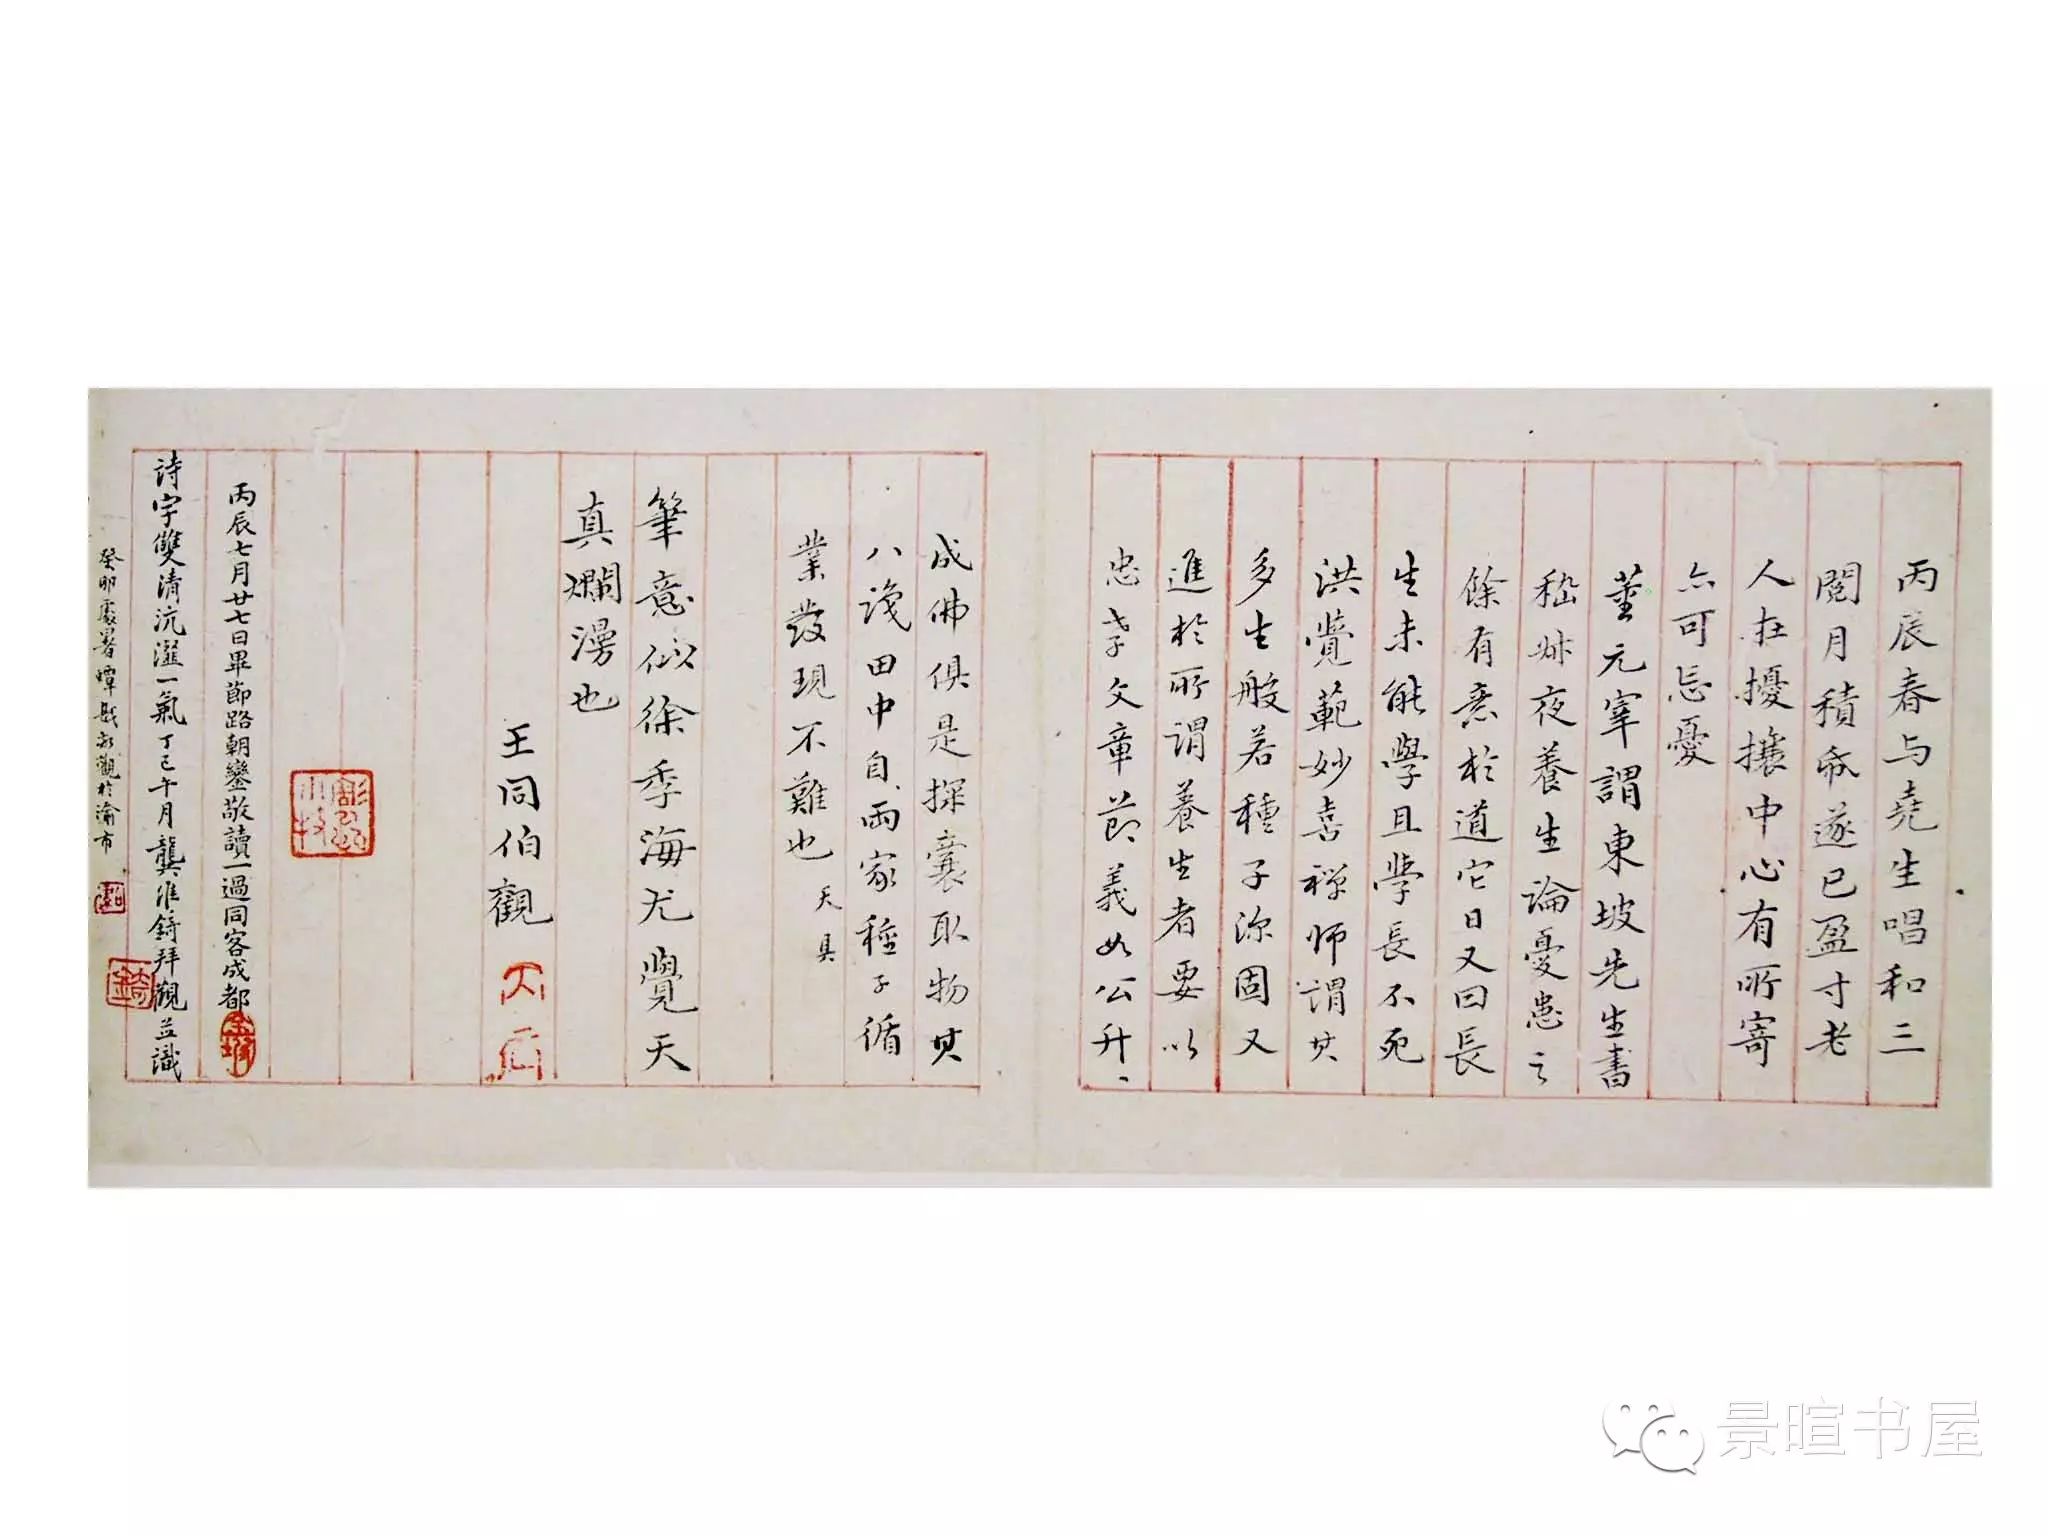 丙辰春与堯生唱和三
閱月積紙遂已盈寸老
人在擾攘中心有所寄
亦可忘憂
董元宰謂東坡先生書
嵇叔夜養生論憂患之
餘有意於道它日又曰長
生未能學且學長不死
洪覺範妙喜禅师謂其
多生般若種子深固又
進於所謂養生者要以
忠孝文章莭義如公升
成佛俱是探囊取物其
八識田中自雨家種子循
業發現不難也
天具
筆意似徐季海尤覺天
真爛漫也
王同伯觀
丙辰七月廿七日畢節路朝鑾敬讀一過同客成都
詩字雙清沆瀣一氣丁巳午月龔維錡拜觀並識
癸卯處暑 觀於渝市
錡
景暄书屋